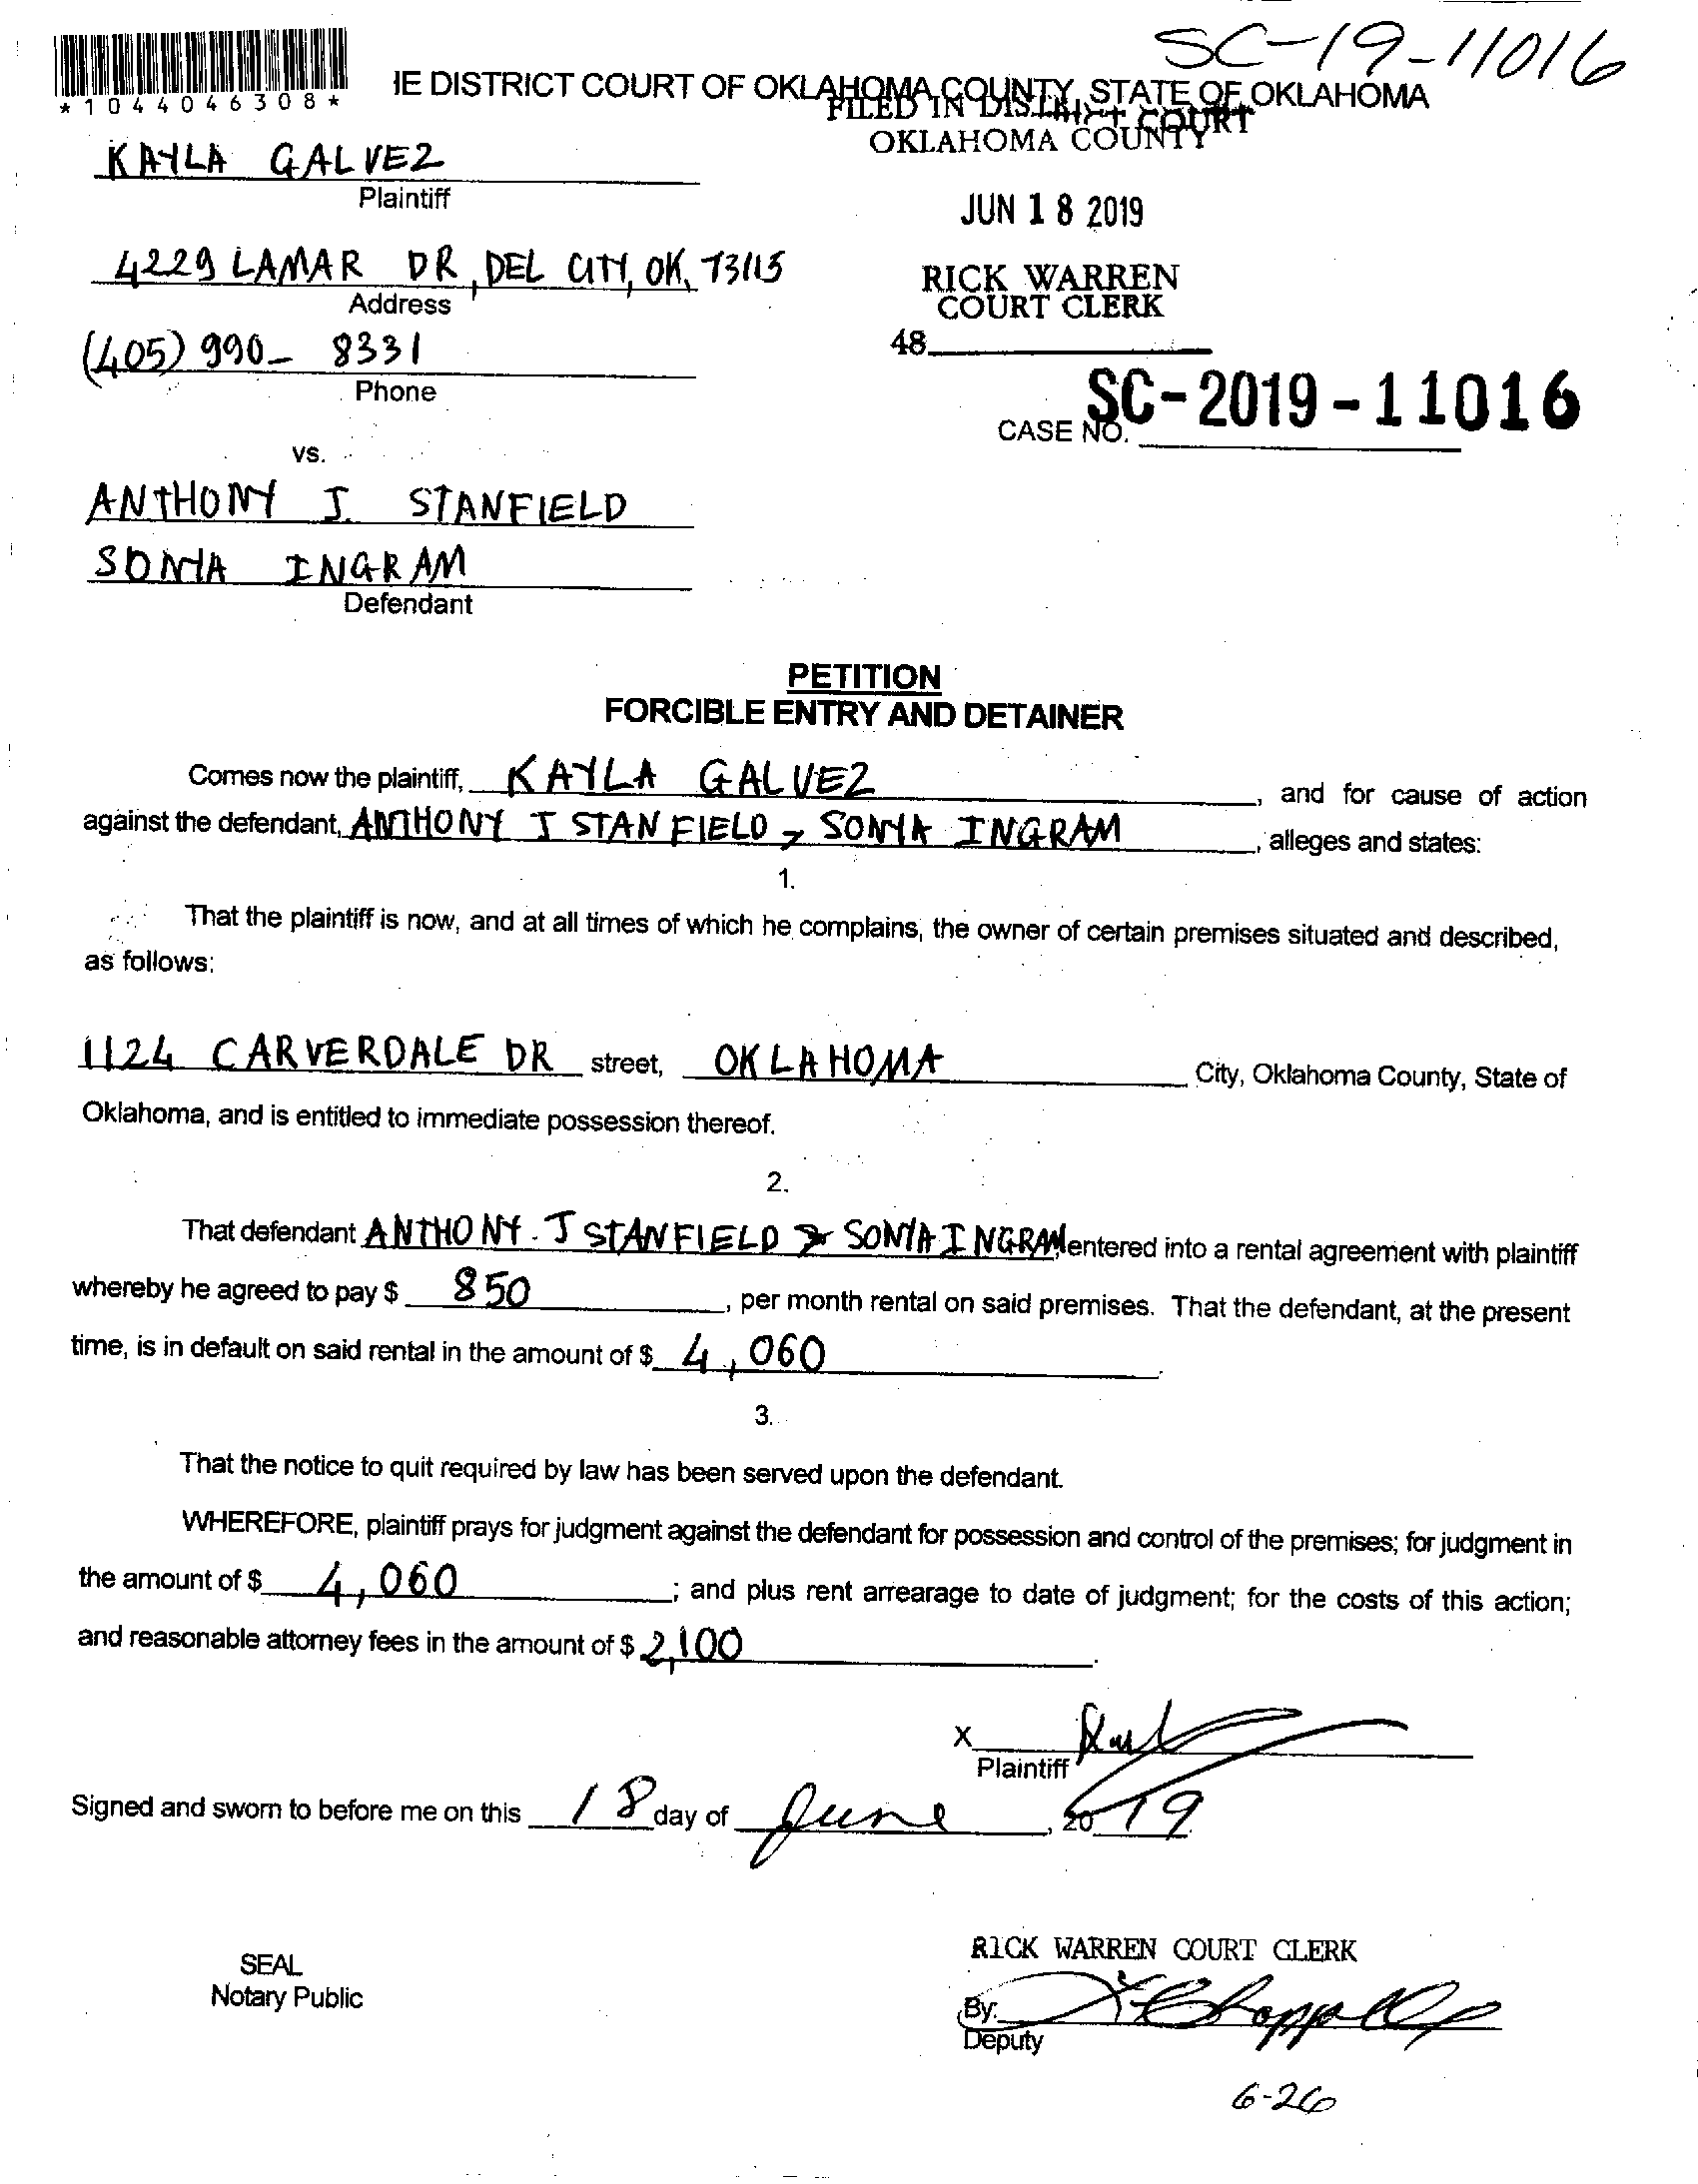 SC-19-11016
*1044046308*
IE DISTRICT COURT OF OKLAHOMA COUNTY, STATE OF OKLAHOMA
FILED IN DISTRICT COURT
OKLAHOMA COUNTY
KAYLA GALVEZ
Plaintiff
JUN 18 2019
4229 LAMAR DR, DEL CITY, OK, 73115
Address
RICK WARREN
COURT CLERK
(405) 990-8331
48
Phone
CASE NO. SC-2019-11016
vs.
ANTHONY J. STANFIELD
SONYA INGRAM
Defendant
PETITION
FORCIBLE ENTRY AND DETAINER
Comes now the plaintiff, KAYLA GALVEZ, and for cause of action
against the defendant, ANTHONY J STANFIELD, SONYA INGRAM, alleges and states:
1.
That the plaintiff is now, and at all times of which he complains, the owner of certain premises situated and described,
as follows:
1124 CARVERDALE DR street, OKLAHOMA City, Oklahoma County, State of
Oklahoma, and is entitled to immediate possession thereof.
2.
That defendant ANTHONY. J STANFIELD & SONYA INGRAM entered into a rental agreement with plaintiff
whereby he agreed to pay $ 850, per month rental on said premises. That the defendant, at the present
time, is in default on said rental in the amount of $ 4,060.
3.
That the notice to quit required by law has been served upon the defendant.
WHEREFORE, plaintiff prays for judgment against the defendant for possession and control of the premises; for judgment in
the amount of $ 4,060; and plus rent arrearage to date of judgment; for the costs of this action;
and reasonable attorney fees in the amount of $ 2,100.
X
Plaintiff
Signed and sworn to before me on this 18 day of June, 2019
RICK WARREN COURT CLERK
SEAL
Notary Public
By:
Deputy
6-26